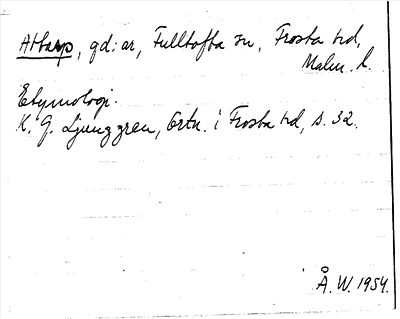 Attarp, gd: ar, Fulltofta sn, Frosta hd,
Malm. l.
Etymologi.
K. G. Ljunggren, Ortn. i Frosta hd, s. 32.
Å. W. 1954.